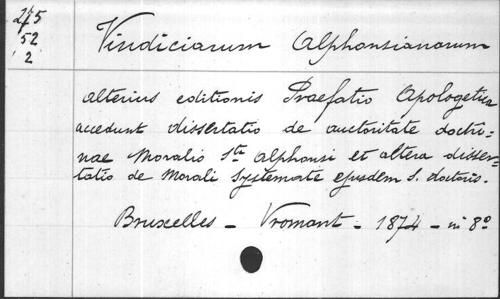 275
52
2
Vindiciarum Alphonsianarum
alterius editionis Praefatio Apologetica
accedunt dissertatio de auctoritate doctri=
nae Moralis Sti Alphonsi et altera disser=
tatio de Morali Systemate ejusdem S. doctoris.
Bruxelles - Vromant - 1874 - in 8º